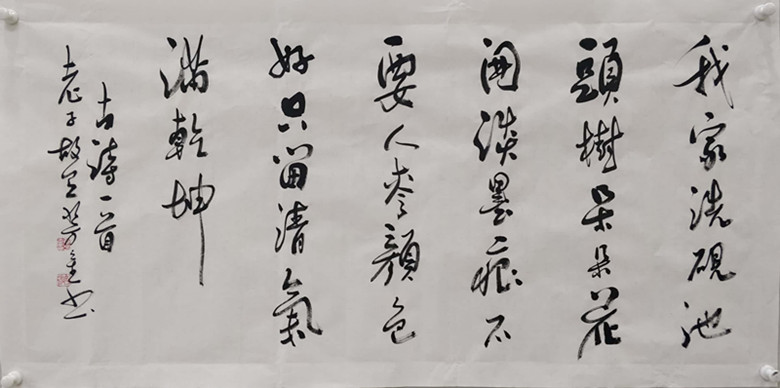 我家洗硯池
頭樹朵朵花
開淡墨痕不
要人夸顏色
好只留清氣
滿乾坤
古詩一首
老子故里书